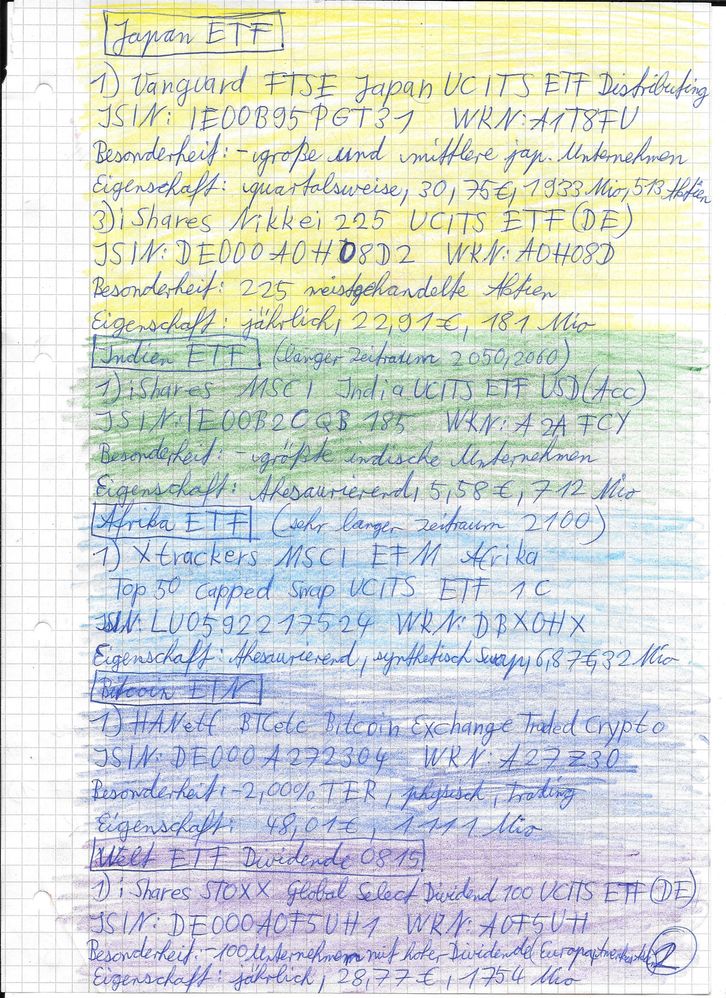 Japan ETF
1) Vanguard FTSE Japan UCITS ETF Distributing
ISIN: IE00B95PGT31 WKN: A1T8FV
Besonderheit: - große und mittlere jap. Unternehmen
Eigenschaft: quartalsweise, 30,75€, 1933 Mio, 513 Aktien
3) iShares Nikkei 225 UCITS ETF (DE)
ISIN: DE000A0H08D2 WKN: A0H08D
Besonderheit: 225 meistgehandelte Aktien
Eigenschaft: jährlich, 22,91€, 181 Mio
Indien ETF (langer Zeitraum 2050, 2060)
1) iShares MSCI India UCITS ETF USD (Acc)
ISIN: IE00B2CQB185 WKN: A2AFCY
Besonderheit: - größte indische Unternehmen
Eigenschaft: Thesaurierend, 5,58€, 712 Mio
Afrika ETF (sehr langer Zeitraum 2100)
1) Xtrackers MSCI EFM Afrika
Top 50 Capped Swap UCITS ETF 1C
ISIN: LU0592217524 WKN: DBX0HX
Eigenschaft: Thesaurierend, synthetisch Swap, 6,87€, 32 Mio
Bitcoin ETN
1) HANetf BTCetc Bitcoin Exchange Traded Crypto
ISIN: DE000A272304 WKN: A27Z30
Besonderheit: - 2,00% TER, physisch, Trading
Eigenschaft: 48,01€, 1111 Mio
Welt ETF Dividende 0815
1) iShares STOXX Global Select Dividend 100 UCITS ETF (DE)
ISIN: DE000A0F5UH1 WKN: A0F5UH
Besonderheit: - 100 Unternehmen mit hoher Dividende
2
Eigenschaft: jährlich, 28,77€, 1754 Mio